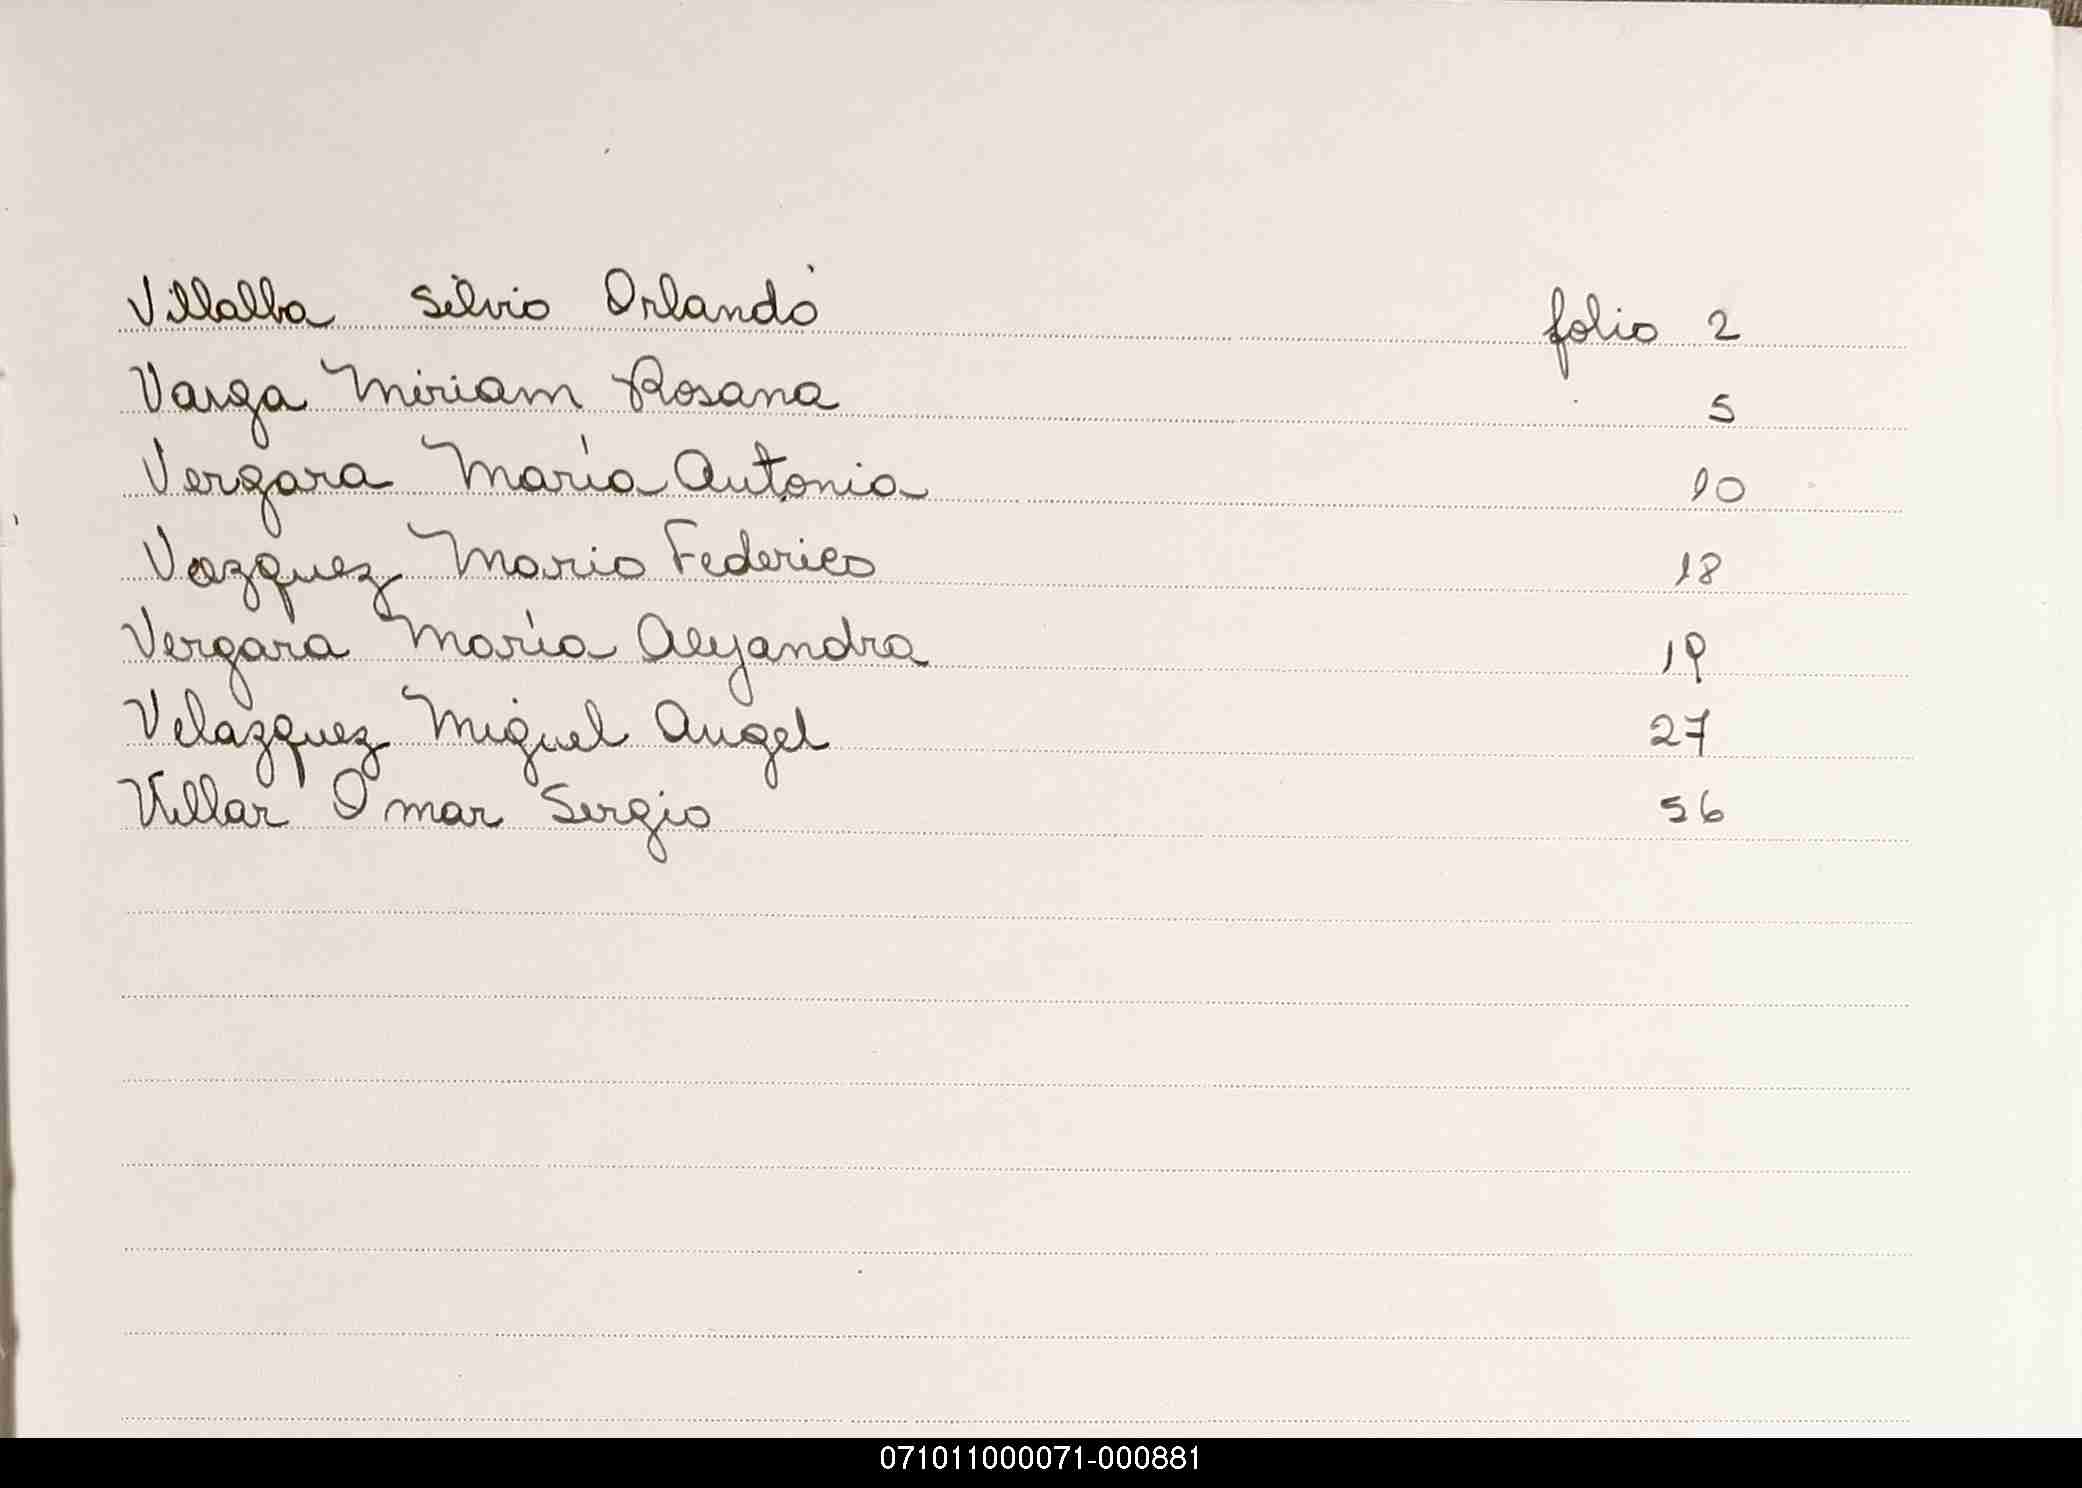 Villalba Silvio Orlando folio 2
Varga Miriam Rosana 5
Vergara María Antonia 10
Vazquez Mario Federico 18
Vergara María Alejandra 19
Velazquez Miguel Angel 27
Villar Omar Sergio 56
071011000071-000881